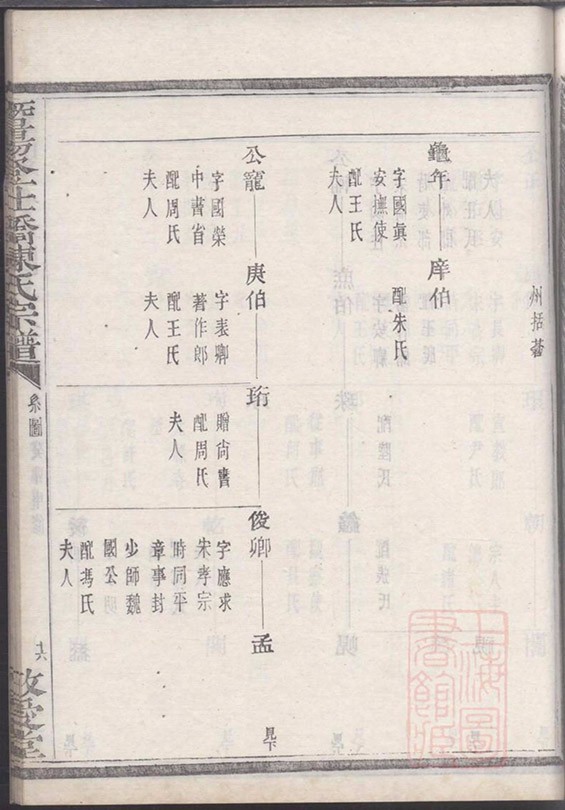 州括蒼
龜年
字國眞
安撫使
配王氏
夫人
庠伯
配朱氏
公寵
字國榮
中書省
配周氏
夫人
庚伯
字表卿
著作郎
配王氏
夫人
珩
贈尚書
配周氏
夫人
俊卿
字應求
宋孝宗
時同平
章事封
少師魏
國公
配馮氏
夫人
孟
見下
陳氏宗譜
系圖
十六
敬愛堂
上海圖
書館藏